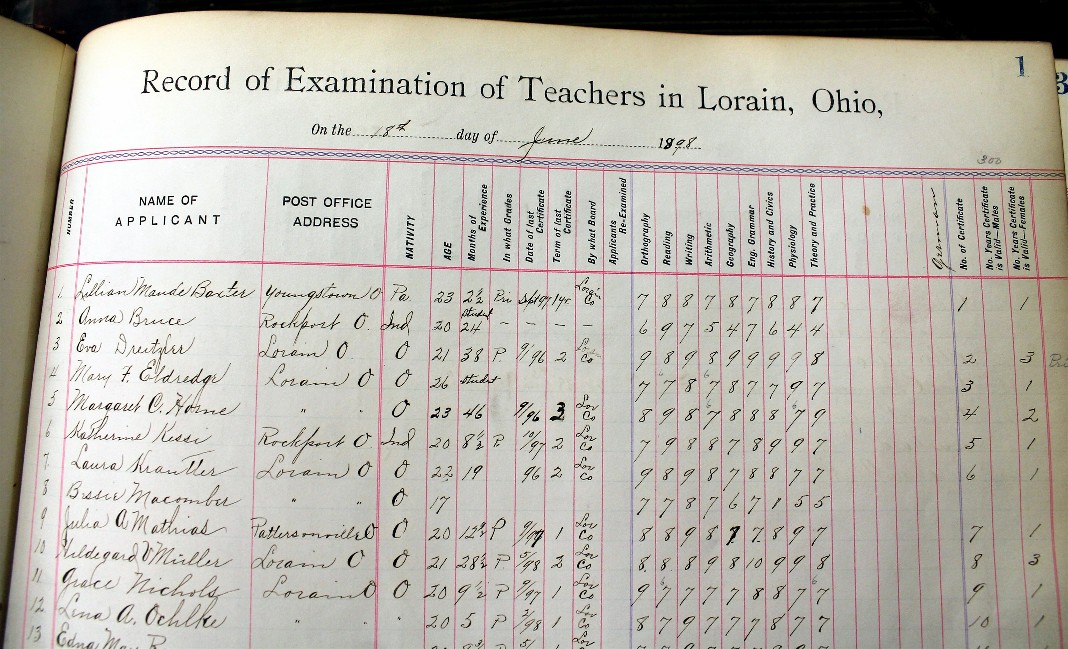 1
3
Record of Examination of Teachers in Lorain, Ohio,
On the 18th day of June 1898.
300
NUMBER NAME OF APPLICANT POST OFFICE ADDRESS NATIVITY AGE Months of Experience In what Grades Date of last Certificate Term of last Certificate By what Board Applicants Re-Examined Orthography Reading Writing Arithmetic Geography Eng. Grammar History and Civics Physiology Theory and Practice German No. of Certificate No. Years Certificate is Valid—Males No. Years Certificate is Valid—Females
1 Lillian Maude Baxter Youngstown O Pa. 23 2½ Pri Sept 97 1 yr Lorain Co 7 8 8 7 8 7 8 8 7 1 1
2 Anna Bruce Rockport O. Ind 20 student 24 – – – – 6 9 7 5 4 7 6 4 4
3 Eva Lorain O. O 21 38 P. 9/96 2 Lor Co 9 8 9 8 9 9 9 9 8 2 3
4 Mary F. Eldredge Lorain O O 26 student 7 7 8 7 8 7 7 9 7 3 1
5 Margaret C. Horne " " O 23 46 9/96 3 Lor Co 8 9 8 7 8 8 8 7 9 4 2
6 Katherine Kessi Rockport O Ind 20 8½ P. 10/97 2 Lor Co 7 9 8 8 7 8 9 9 7 5 1
7. Laura Krantler Lorain O O 22 19 96 2 Lor Co 9 8 9 8 7 8 8 7 7 6 1
8 Bessie Macomber " " O 17 7 7 8 7 6 7 8 5 5
9 Julia A Mathias Pattersonville O O 20 12½ P 9/97 1 Lor Co 8 8 9 8 7 7. 8 9 7 7 1
10 Hildegard V Müller Lorain O O 21 28½ P 5/98 2 Lor Co 8 8 8 9 8 10 9 9 8 8 3
11 Grace Nichols Lorain O O 20 9½ P 9/97 1 Lor Co 9 7 7 7 7 8 8 7 7 9 1
12 Lena A. Ochlke " " " 20 5 P 2/98 1 Lor Co 8 7 9 7 7 7 8 7 7 10 1
13 Edna May